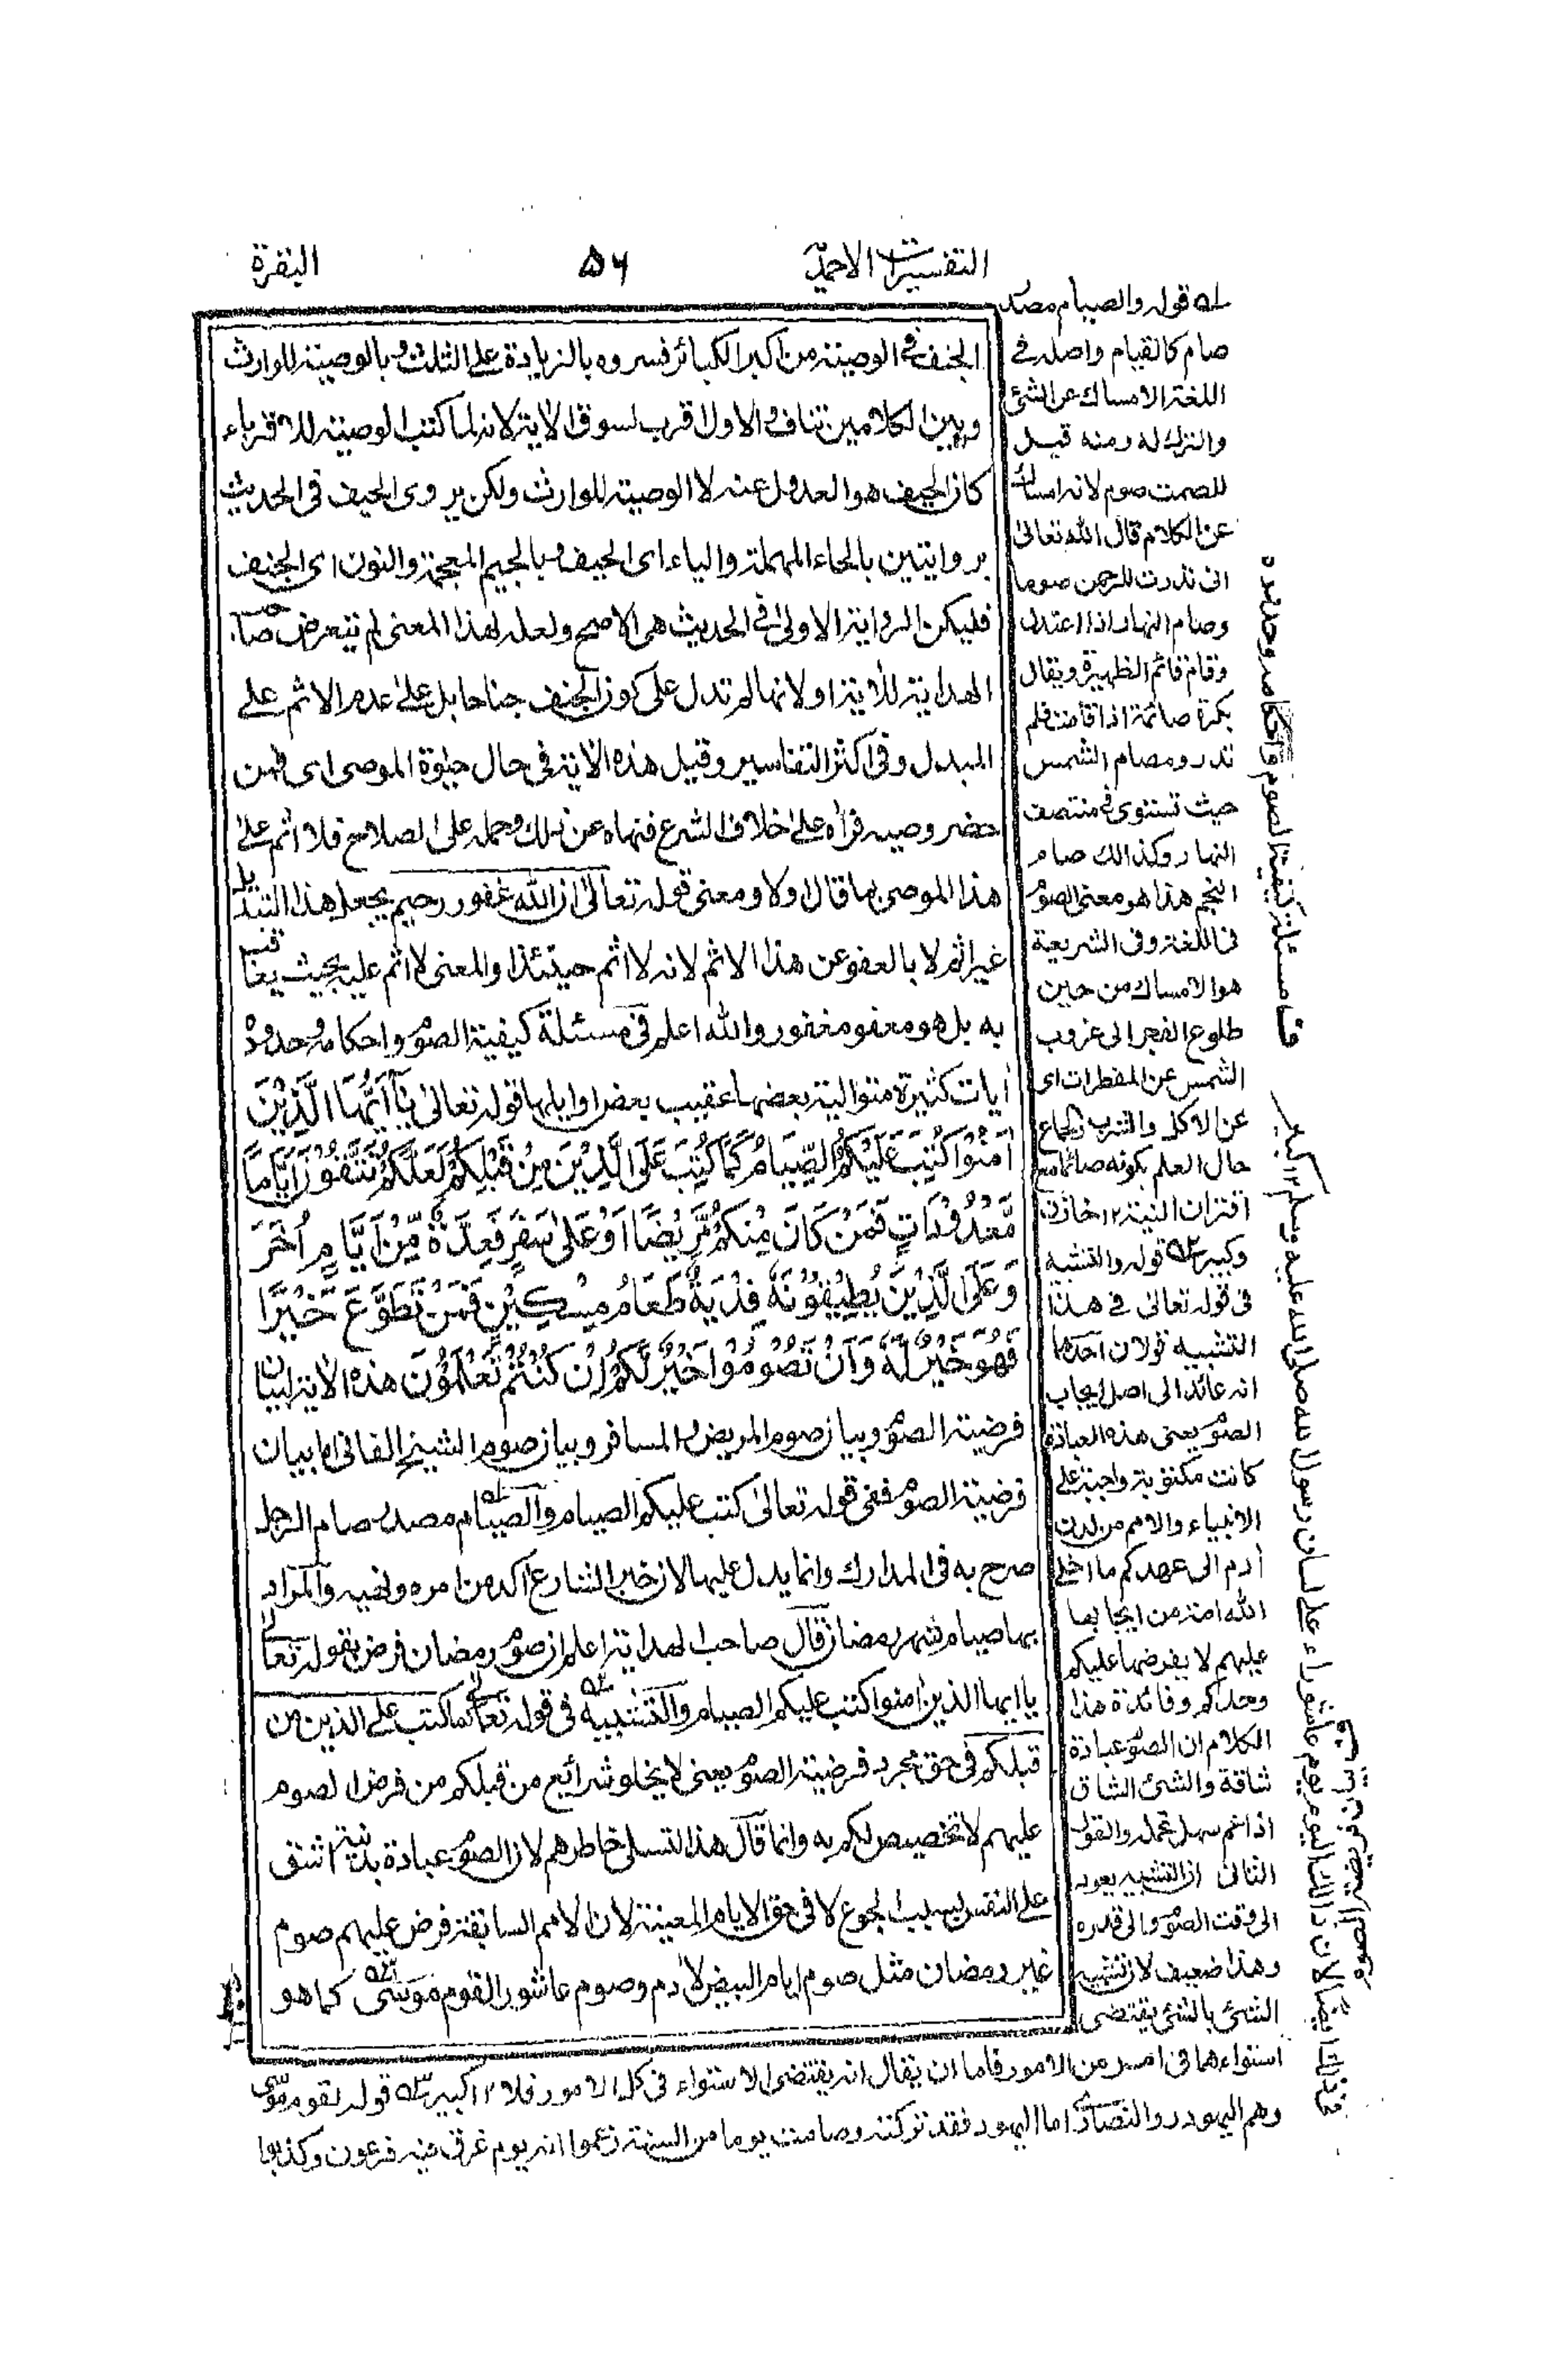 التفسيرات الاحمدية
٥٦
البقرة
الجنف في الوصية من اكبر الكبائر فسروه بالزيادة على الثلث وبالوصية للوارث
وبين الكلامين تناف والاول اقرب لسوق الآية لانه لما كتب الوصية للاقرباء
كان الحيف هو العدول عنه لا الوصية للوارث ولكن يروى الحيف في الحديث
بروايتين بالحاء المهملة والياء اى الحيف وبالجيم المعجمة والنون اى الجنف
فليكن الرواية الاولى في الحديث هى الاصح ولعله لهذا المعنى لم يتعرض صاحب
الهداية للآية او لانها لم تدل على كون الجنف جناحا بل على عدم الاثم على
المبدل وفي اكثر التفاسير وقيل هذه الآية في حال حيوة الموصى اى فمن
حضر وصيه فرأه على خلاف الشرع فنهاه عن ذلك وحمله على الصلاح فلا اثم على
هذا الموصى بما قال اولا ومعنى قوله تعالى ان الله غفور رحيم يجعل هذا التبديل
غير اثم لا بالعفو عن هذا الاثم لانه لا اثم حينئذ والمعنى لا اثم عليه بحيث يعاقب
به بل هو معفو مغفور والله اعلم في مسئلة كيفية الصوم واحكامه وحدوده
اٰيات كثيرة متوالية بعضها عقيب بعض اولها قوله تعالى يٰٓاَيُّهَا الَّذِيْنَ
اٰمَنُوْا كُتِبَ عَلَيْكُمُ الصِّيَامُ كَمَا كُتِبَ عَلَى الَّذِيْنَ مِنْ قَبْلِكُمْ لَعَلَّكُمْ تَتَّقُوْنَ اَيَّامًا
مَّعْدُوْدَاتٍ فَمَنْ كَانَ مِنْكُمْ مَّرِيْضًا اَوْ عَلٰى سَفَرٍ فَعِدَّةٌ مِّنْ اَيَّامٍ اُخَرَ
وَعَلَى الَّذِيْنَ يُطِيْقُوْنَهٗ فِدْيَةٌ طَعَامُ مِسْكِيْنٍ فَمَنْ تَطَوَّعَ خَيْرًا
فَهُوَ خَيْرٌ لَّهٗ وَاَنْ تَصُوْمُوْا خَيْرٌ لَّكُمْ اِنْ كُنْتُمْ تَعْلَمُوْنَ هذه الآية لبيان
فرضية الصوم وبيان صوم المريض والمسافر وبيان صوم الشيخ الفانى اما بيان
فرضية الصوم ففى قوله تعالى كتب عليكم الصيام والصيام مصدر صام الرجل
صرح به في المدارك وانما يدل عليها لان خبر الشارع اٰكد من امره ونهيه والمراد
بها صيام شهر رمضان قال صاحب الهداية اعلم ان صوم رمضان فرض بقوله تعالى
يا ايها الذين اٰمنوا كتب عليكم الصيام والتشبيه في قوله تعالى كما كتب على الذين من
قبلكم في حق مجرد فرضية الصوم يعنى لا يخلو شرائع من قبلكم من فرض الصوم
عليهم لا تخصيص لكم به وانما قال هذا لتسلى خاطرهم لان الصوم عبادة بدنية اشق
على النفس بسبب الجوع لا في حق الايام المعينة لان الامم السابقة فرض عليهم صوم
غير رمضان مثل صوم ايام البيض لآدم وصوم عاشورا لقوم موسى كما هو
له قوله والصيام مصدر
صام كالقيام واصله في
اللغة الامساك عن الشئ
والترك له ومنه قيل
للصمت صوم لانه امساك
عن الكلام قال الله تعالى
انى نذرت للرحمن صوما
وصام النهار اذا اعتدل
وقام قائم الظهيرة ويقال
بكرة صائمة اذا قامت فلم
تدر ومصام الشمس
حيث تستوى في منتصف
النهار وكذالك صام
النجم هذا هو معنى الصوم
في اللغة وفى الشريعة
هو الامساك من حين
طلوع الفجر الى غروب
الشمس عن المفطرات اى
عن الاكل والشرب والجماع
حال العلم بكونه صائما مع
اقتران النية ١٢ خازن
وكبير ٥٢ قوله والتشبيه
في قوله تعالى في هذا
التشبيه قولان احدهما
انه عائد الى اصل ايجاب
الصوم يعنى هذه العبادة
كانت مكتوبة واجبة على
الانبياء والامم من لدن
اٰدم الى عهدكم ما اخلى
الله امة من ايجابها
عليهم لا يفرضها عليكم
وحدكم وفائدة هذا
الكلام ان الصوم عبادة
شاقة والشئ الشاق
اذا عم سهل تحمله والقول
الثانى ان التشبيه يعود
الى وقت الصوم والى قدره
وهذا ضعيف لان تشبيه
الشئ بالشئ يقتضى
استواءهما في امر من الامور فاما ان يقال انه يقتضى الاستواء في كل الامور فلا ١٢ كبير ٥٣ قوله لقوم موسى
وهم اليهود والنصارى اما اليهود فقد تركته وصامت يوما من السنة زعموا انه يوم غرق فيه فرعون وكذبوا
في ذلك ايضا لان ذالك اليوم يوم عاشوراء على لسان رسول الله صلى الله عليه وسلم ١٢ كبير
مسئلة كيفية الصوم واحكامه وحدوده